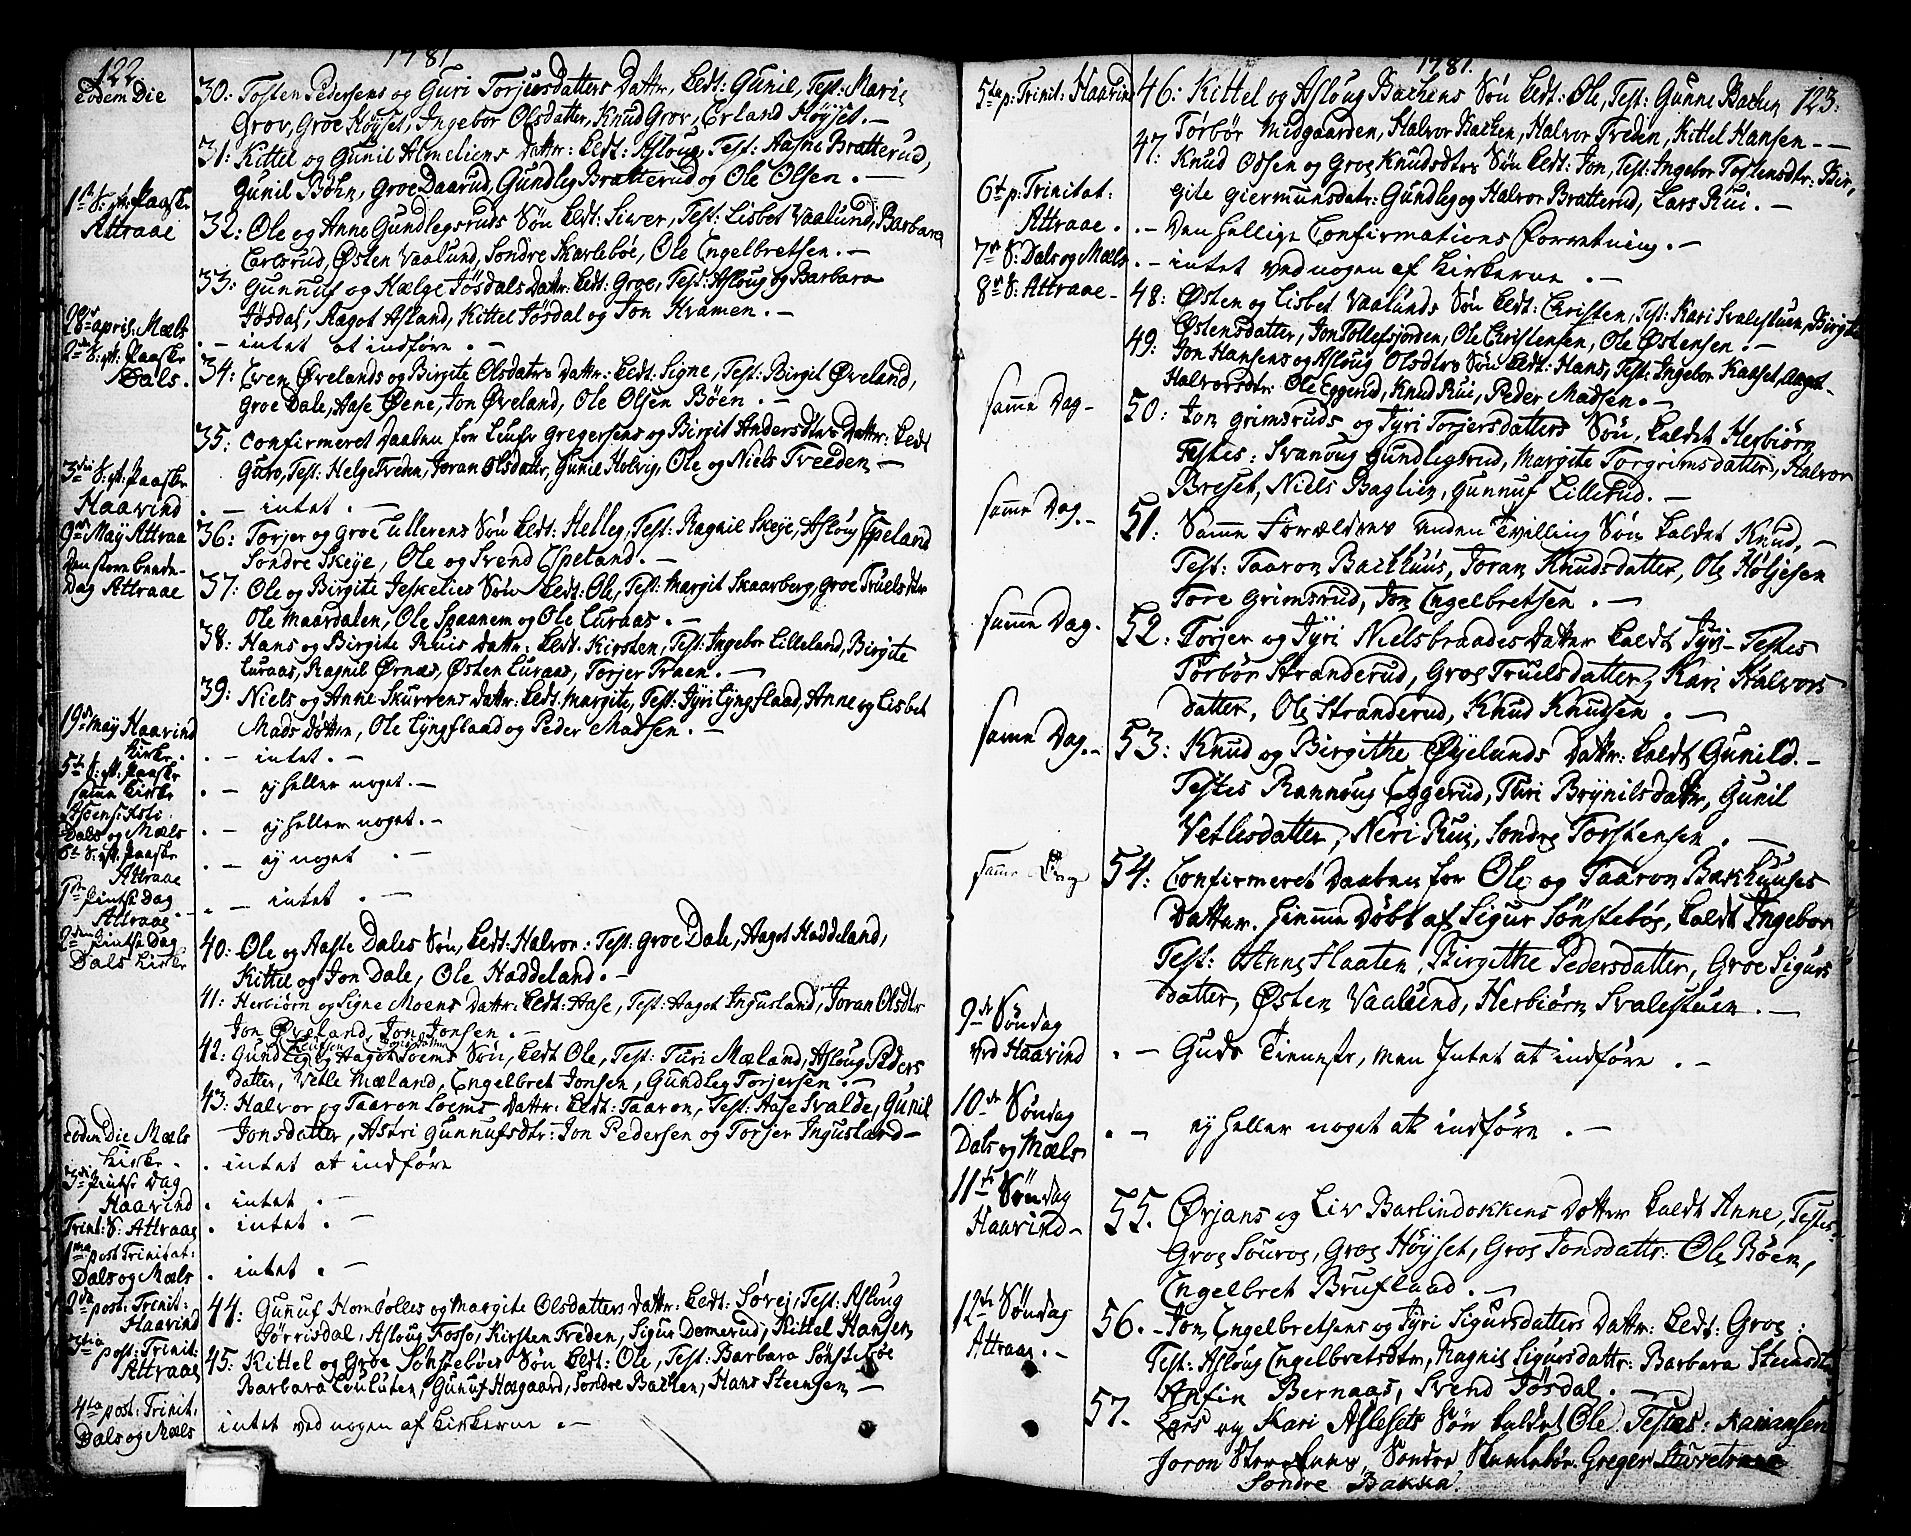 122
1781
Eodem Die
30: Tosten Pedersens og Guri Torjersdatters Dattr, kedt: Gunil, Test: Marie
Grov, Groe Høyset, Ingebor Olsdatter, Knud Grov, Erland Høyset. —
31: Kittel og Gunil Almeliens dattr: kedt: Asloug, Test: Aasne Bratterud,
Gunil Bøhn, Groe Daarud, Gundleg Bratterud og Ole Olsen. —
1ste S: pt: Paaske
Attraae
32: Ole og Anne Gundlegsruds Søn kedt: Siwer, Test: Lisbet Vaalund, Barbara
Carlsrud, Østen Vaalund, Sondre Skarlebøe, Ole Engelbretsen. —
33: Gunnuf og Hælge Jøsdals Dattr: kedt: Groe, Test: Asloug og Barbara
Jøsdal, Aagot Asland, Kittel Jøsdal og Jon Kvamen. —
28de april: Mæls
. — intet at indføre . —
2den S: pt: Paaske
Dals.
34: Even Øvelands og Birgite Olsdatrs dattr: kedt: Signe, Test: Birgit Øveland,
Groe Dale, Aase Øene, Jon Øveland, Ole Olsen Bøen. —
35: Confirmeret Daaben for Leufr Gregersens og Birgit Andersdtrs Dattr: kedt
Guro, Test: Helge Treden, Joran Olsdattr, Gunil Holvig, Ole og Niels Treeden —
3die S: pt: Paaske
Haavind
. — intet . —
9de May Attraae
36: Torjer og Groe Lullerens Søn kedt: Helleg, Test: Ragnil Skeye, Asloug Espeland
Sondre Skeye, Ole og Svend Espeland. —
Den store beede-
Dag Attraae
37: Ole og Birgite Jeskelies Søn kedt: Ole, Test: Margit Skaarberg, Groe Truelsdtr
Ole Maardalen, Ole Spaanem og Ole Luraas. —
38: Hans og Birgite Ruis dattr: kedt: Kirsten, Test: Ingebor Lilleland, Birgite
Luraas, Ragnil Ørnæs, Østen Luraas, Torjer Traen. —
39: Niels og Anne Skurvens dattr: kedt: Margite, Test: Jyri Lyngfland, Anne og Lisbet
Mads Døttre, Ole Lyngflaad og Peder Madsen. —
19de may Haavind
Kirke.
. — intet . —
5te S: pt: Paaske
samme Kirke
. — ej heller noget. —
Ascens: Xsti
Dals og Mæls
. — ej heller noget. —
6te S: pt: Paaske
Attraae
. — ej noget . —
1ste Pintse Dag
Attraae
. — intet . —
2den Pintse Dag
Dals Kirke
40: Ole og Aaste Dales Søn, kedt: Halvor: Test: Groe Dale, Aagot Haddeland,
Kittel og Jon Dale, Ole Haddeland. —
41: Herbiørn og Signe Moens dattr: kedt: Aase, Test: Aagot Ingusland, Joran Olsdtr
Jon Øveland, Jon Jonsen. —
42: Gundleg og Aagot Loems Søn, kedt Ole, Test: Turi Mæland, Asloug Peders
datter, Vetle Mæland, Engelbret Jonsen, Gundleg Torjersen. —
43: Halvor og Taaron Loems dattr: kedt: Taaron, Test: Aase Svalde, Gunil
Jonsdatter, Astri Gunnufsdtr: Jon Pedersen og Torjer Ingusland —
Eodem Die Mæls
Kirke.
. intet at indføre
3die Pintse Dag
Haavind
. intet . —
Trint: S: Attraae
. intet . —
1ma post Trinitat:
Dals og Mæls
. intet . —
2da post: Trinit:
Haavind
44: Gunuf Homdølles og Margite Olsdatters dattr: kedt: Sørej, Test: Asloug
Jørrisdal, Asloug Fosso, Kirsten Treden, Sigur Domerud, Kittel Hansen
3tia post: Trinit:
Attraae
45: Kittel og Groe Sønstebøes Søn kedt: Ole, Test: Barbara Sønstebøe
Barbara Luuluten, Gunuf Haagaard, Sondre Backen, Hans Steensen —
4ta post: Trinit:
Dals og Mæls
intet ved nogen af Kirkerne . —
1781.
123:
5ta p: Trinit: Haavind
46: Kittel og Asloug Backens Søn kedt: Ole, Test: Gunne Backen
Torbør Midgaarden, Halvor Backen, Halvor Treden, Kittel Hansen — —
47: Knud Odsen og Groe Knudsdtrs Søn kedt: Jon, Test: Ingebor Tostensdtr: Bir,
gite Giermunsdatr: Gundleg og Halvor Bratterud, Lars Rui. —
6te p: Trinitat:
Attraae.
. — Den hellige Confirmations Forretning. —
7de S: Dals og Mæls
. — intet ved nogen af Kirkerne . —
8de S: Attraae —
48: Østen og Lisbet Vaalunds Søn kedt: Christen, Test: Kari Svalestuen, Birgite
Østensdatter, Jon Tollefsjorden, Ole Christensen, Ole Østensen. —
49: Jon Hansens og Asloug Olsdtrs Søn kedt: Hans, Test: Ingebor Kaaset, Aagot
Halvorsdtr: Ole Eggerud, Knud Rui, Peder Madsen. —
samme Dag —
50: Jon Grimsruds og Jyri Torjersdatters Søn, kaldet Herbiørn
Testes: Svanoug Gundlegsrud, Margite Torgrimsdatter, Halvor
Breset, Niels Baglien, Gunnuf Lillerud. —
samme Dag. —
51: Samme Forældres anden Tvilling Søn kaldet Knud, —
Test: Taaron Backhuus, Joran Knudsdatter, Ole Høljesen
Tore Grimsrud, Jon Engelbretsen . —
samme Dag.
52: Torjer og Jyri Nielsbraades datter kaldt Jyri — Testes
Torbør Stranderud, Groe Truelsdatter, Kari Halvors
datter, Ole Stranderud, Knud Knudsen . —
samme Dag. —
53: Knud og Birgithe Øyelands dattr: kaldt Gunild. —
Testes Rannoug Eggerud, Turi Brynilsdattr, Gunil
Vetlesdatter, Neri Rui, Sondre Torstensen . —
samme Dag
54: Confirmeret Daaben for Ole og Taaron Bakhuuses
Datter. hjemme Døbt af Sigur Sønstebøe, kaldt Ingebor
Test: Anne Flaaten, Birgithe Pedersdatter, Groe Sigurs
datter, Østen Vaalund, Herbiørn Svalestuen . —
9de Søndag
ved Haavind
. — Guds Tieneste, men Intet at indføre . —
10de Søndag
Dals og Mæls
. — ej heller noget at indføre . —
11te Søndag
Haavind —
55. Ørjans og Liv Barlindokkens Datter kaldt Anne, Testes
Groe Louroe, Groe Høyset, Groe Jonsdattr: Ole Bøen,
Engelbret Brufland . —
12te Søndag
Attraae . —
56. Jon Engelbretsens og Jyri Sigursdatters Dattr: kedt: Groe:
Test: Asloug Engelbretsdtr, Ragnil Sigursdattr: Barbara Steensdtr
Anfin Bernaas, Svend Jøsdal. —
57. Lars og Kari Aslesets Søn kaldet Ole Testes:
Joron Sondre Greger
Sondre Bakken.